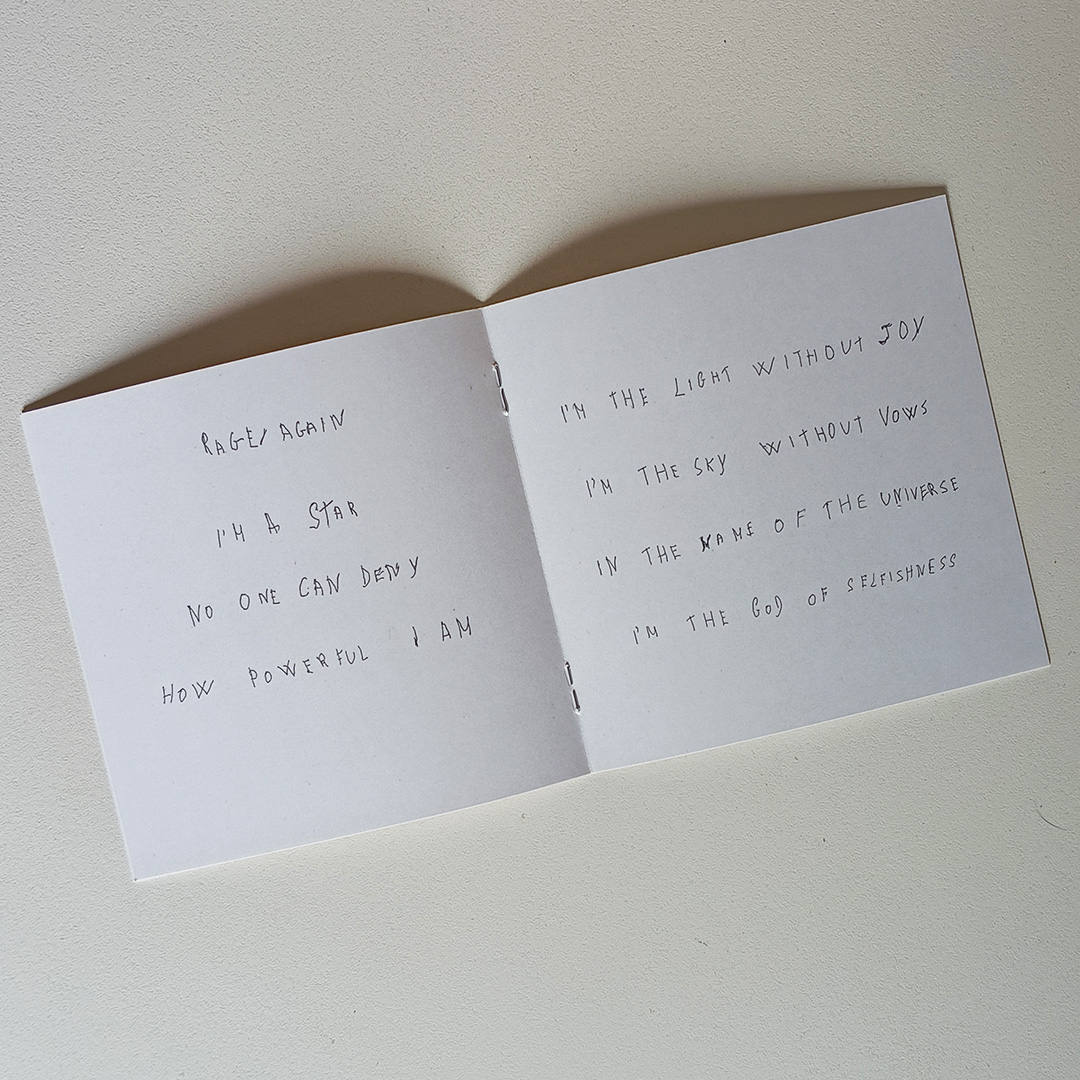 RAGE, AGAIN
I'M A STAR
NO ONE CAN DENY
HOW POWERFUL I AM
I'M THE LIGHT WITHOUT JOY
I'M THE SKY WITHOUT VOWS
IN THE NAME OF THE UNIVERSE
I'M THE GOD OF SELFISHNESS